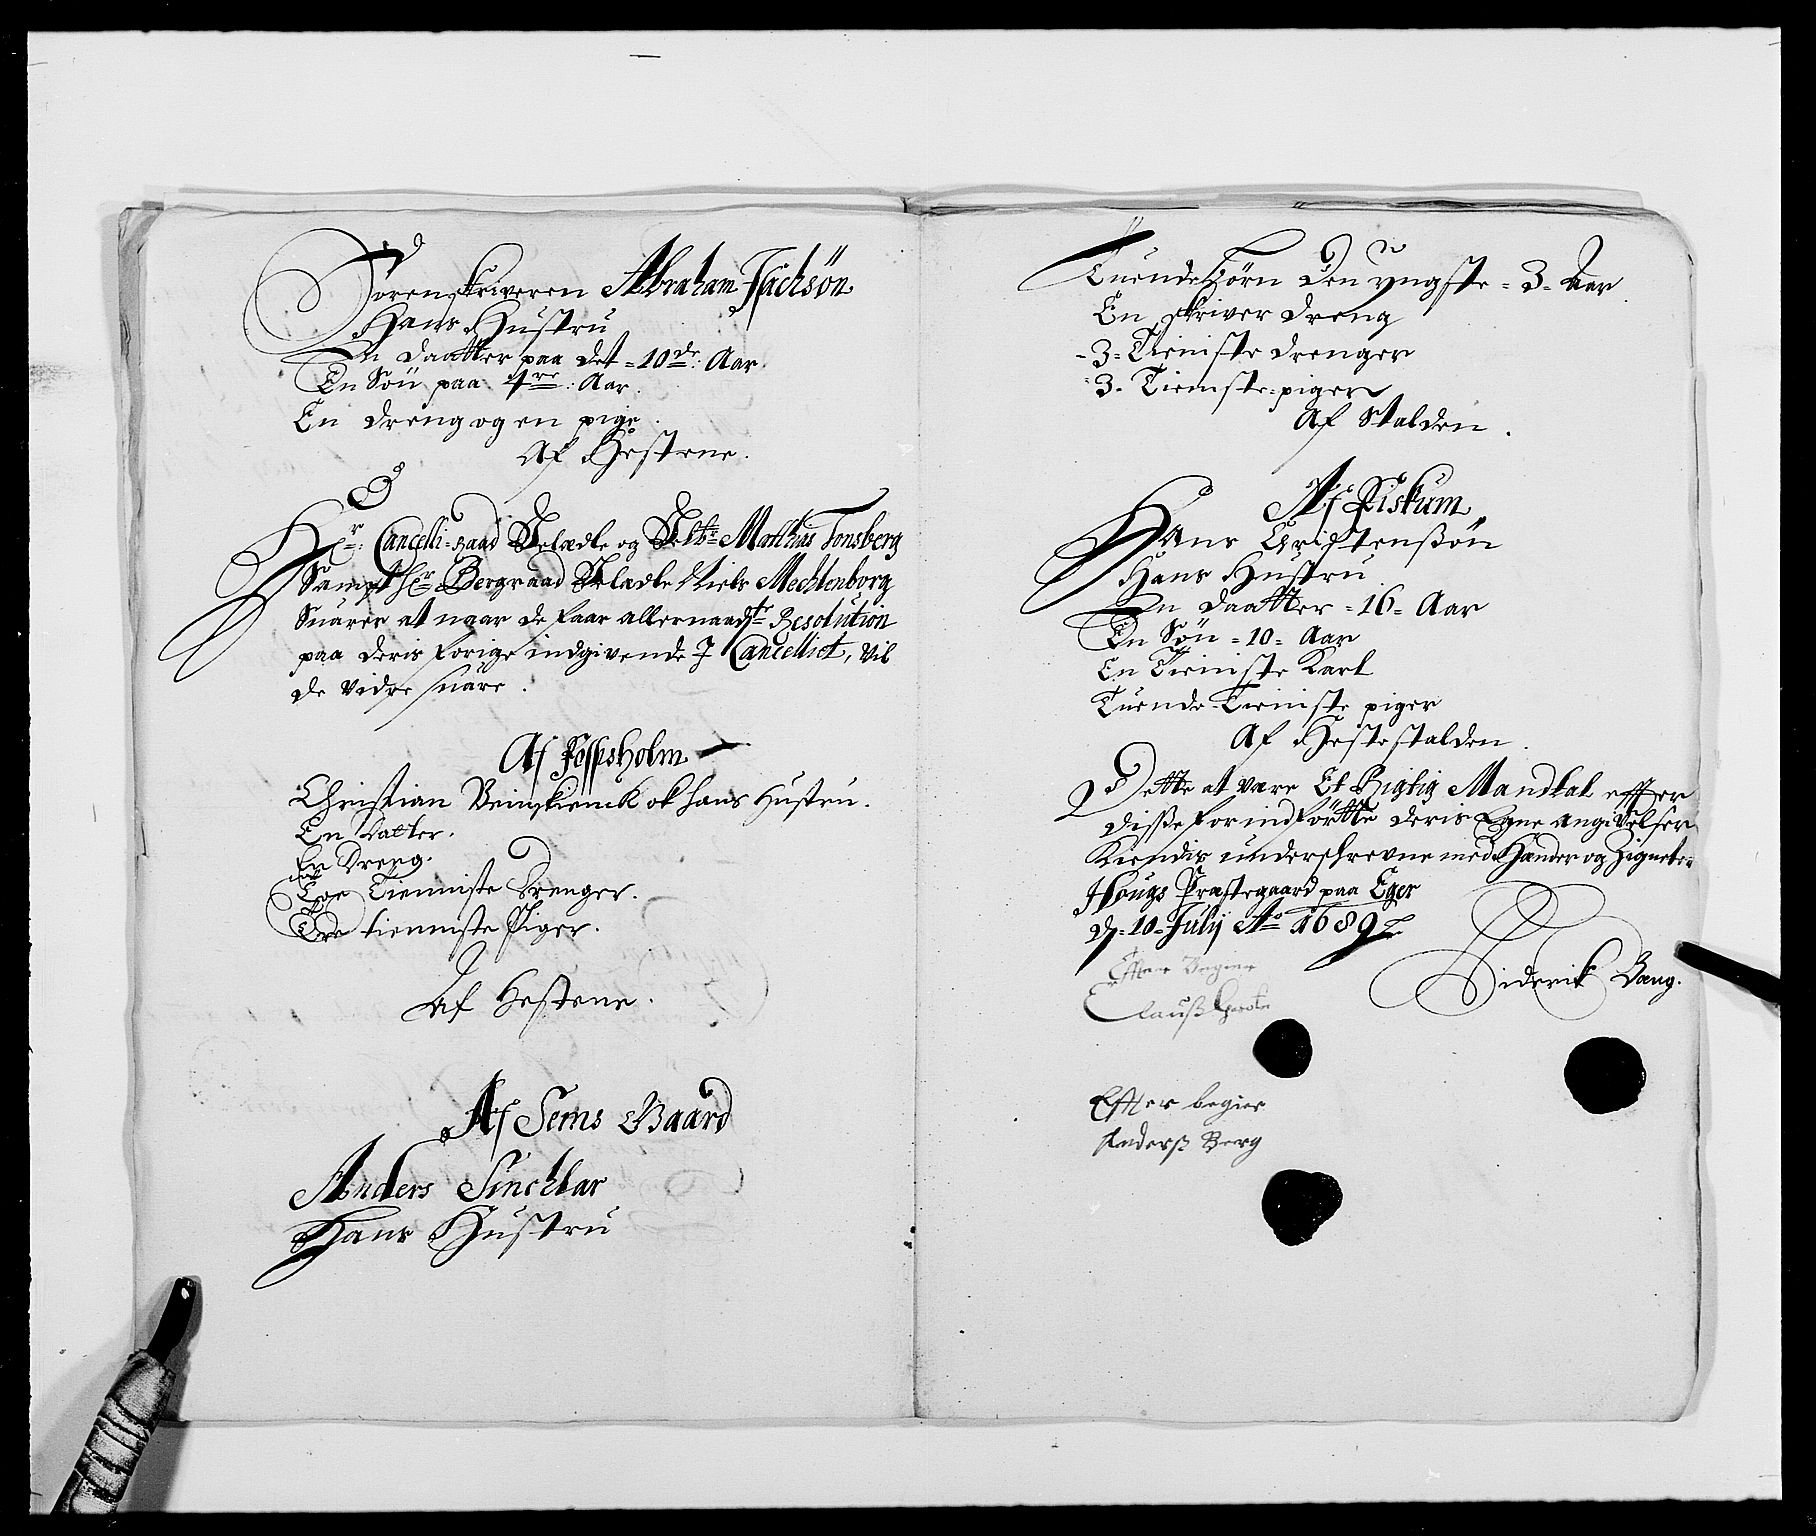 Sorenskriveren Abraham Jachsøn
Hans Hustru
En daatter paa det =10de: Aar.
En Søn paa 4re: Aar.
En dreng og en pige.
Af Hestene.
Hr: Cancelli-Raad Velædle og Velbr Matthias Tonsberg
Sampt Hr Bergraad Velædle Niels Mechlenborg
Suarer at naar de faar allernaadste Resolution
paa deris forige indgivende J Cancelliet, vil
de vidre suare.
Af Fossesholm
Christian Weinskienck ok hans Hustru.
En Datter.
En Dreng.
Toe Tienniste Drenger.
Tre tienniste Piger.
Af Hestene.
Af Sems Gaard
Anders Sinchlar
Hans Hustru
Tuende Børn den yngste =3= Aar
En skriver dreng
=3= Tieniste drenger
=3= Tieniste-piger
Af Stalden.
Af Fiskum
Hans Christenssøn
Hans Hustru
En daatter =16= Aar
En Søn =10= Aar
En Tieniste Karl
Tuende Tieniste piger
Af Hestestalden.
Dette at vare Et Rigtig Mandtal effter
disse forindførtte deris Egne angivelser
Kiendis underschrevne med Hænder og Zigneter
Hougs Præstegaard paa Eger
d. 10 Julij Ao 1689
Diderik Bang.
Efter Begier
Clauss
Efter begier
Anderss Berg